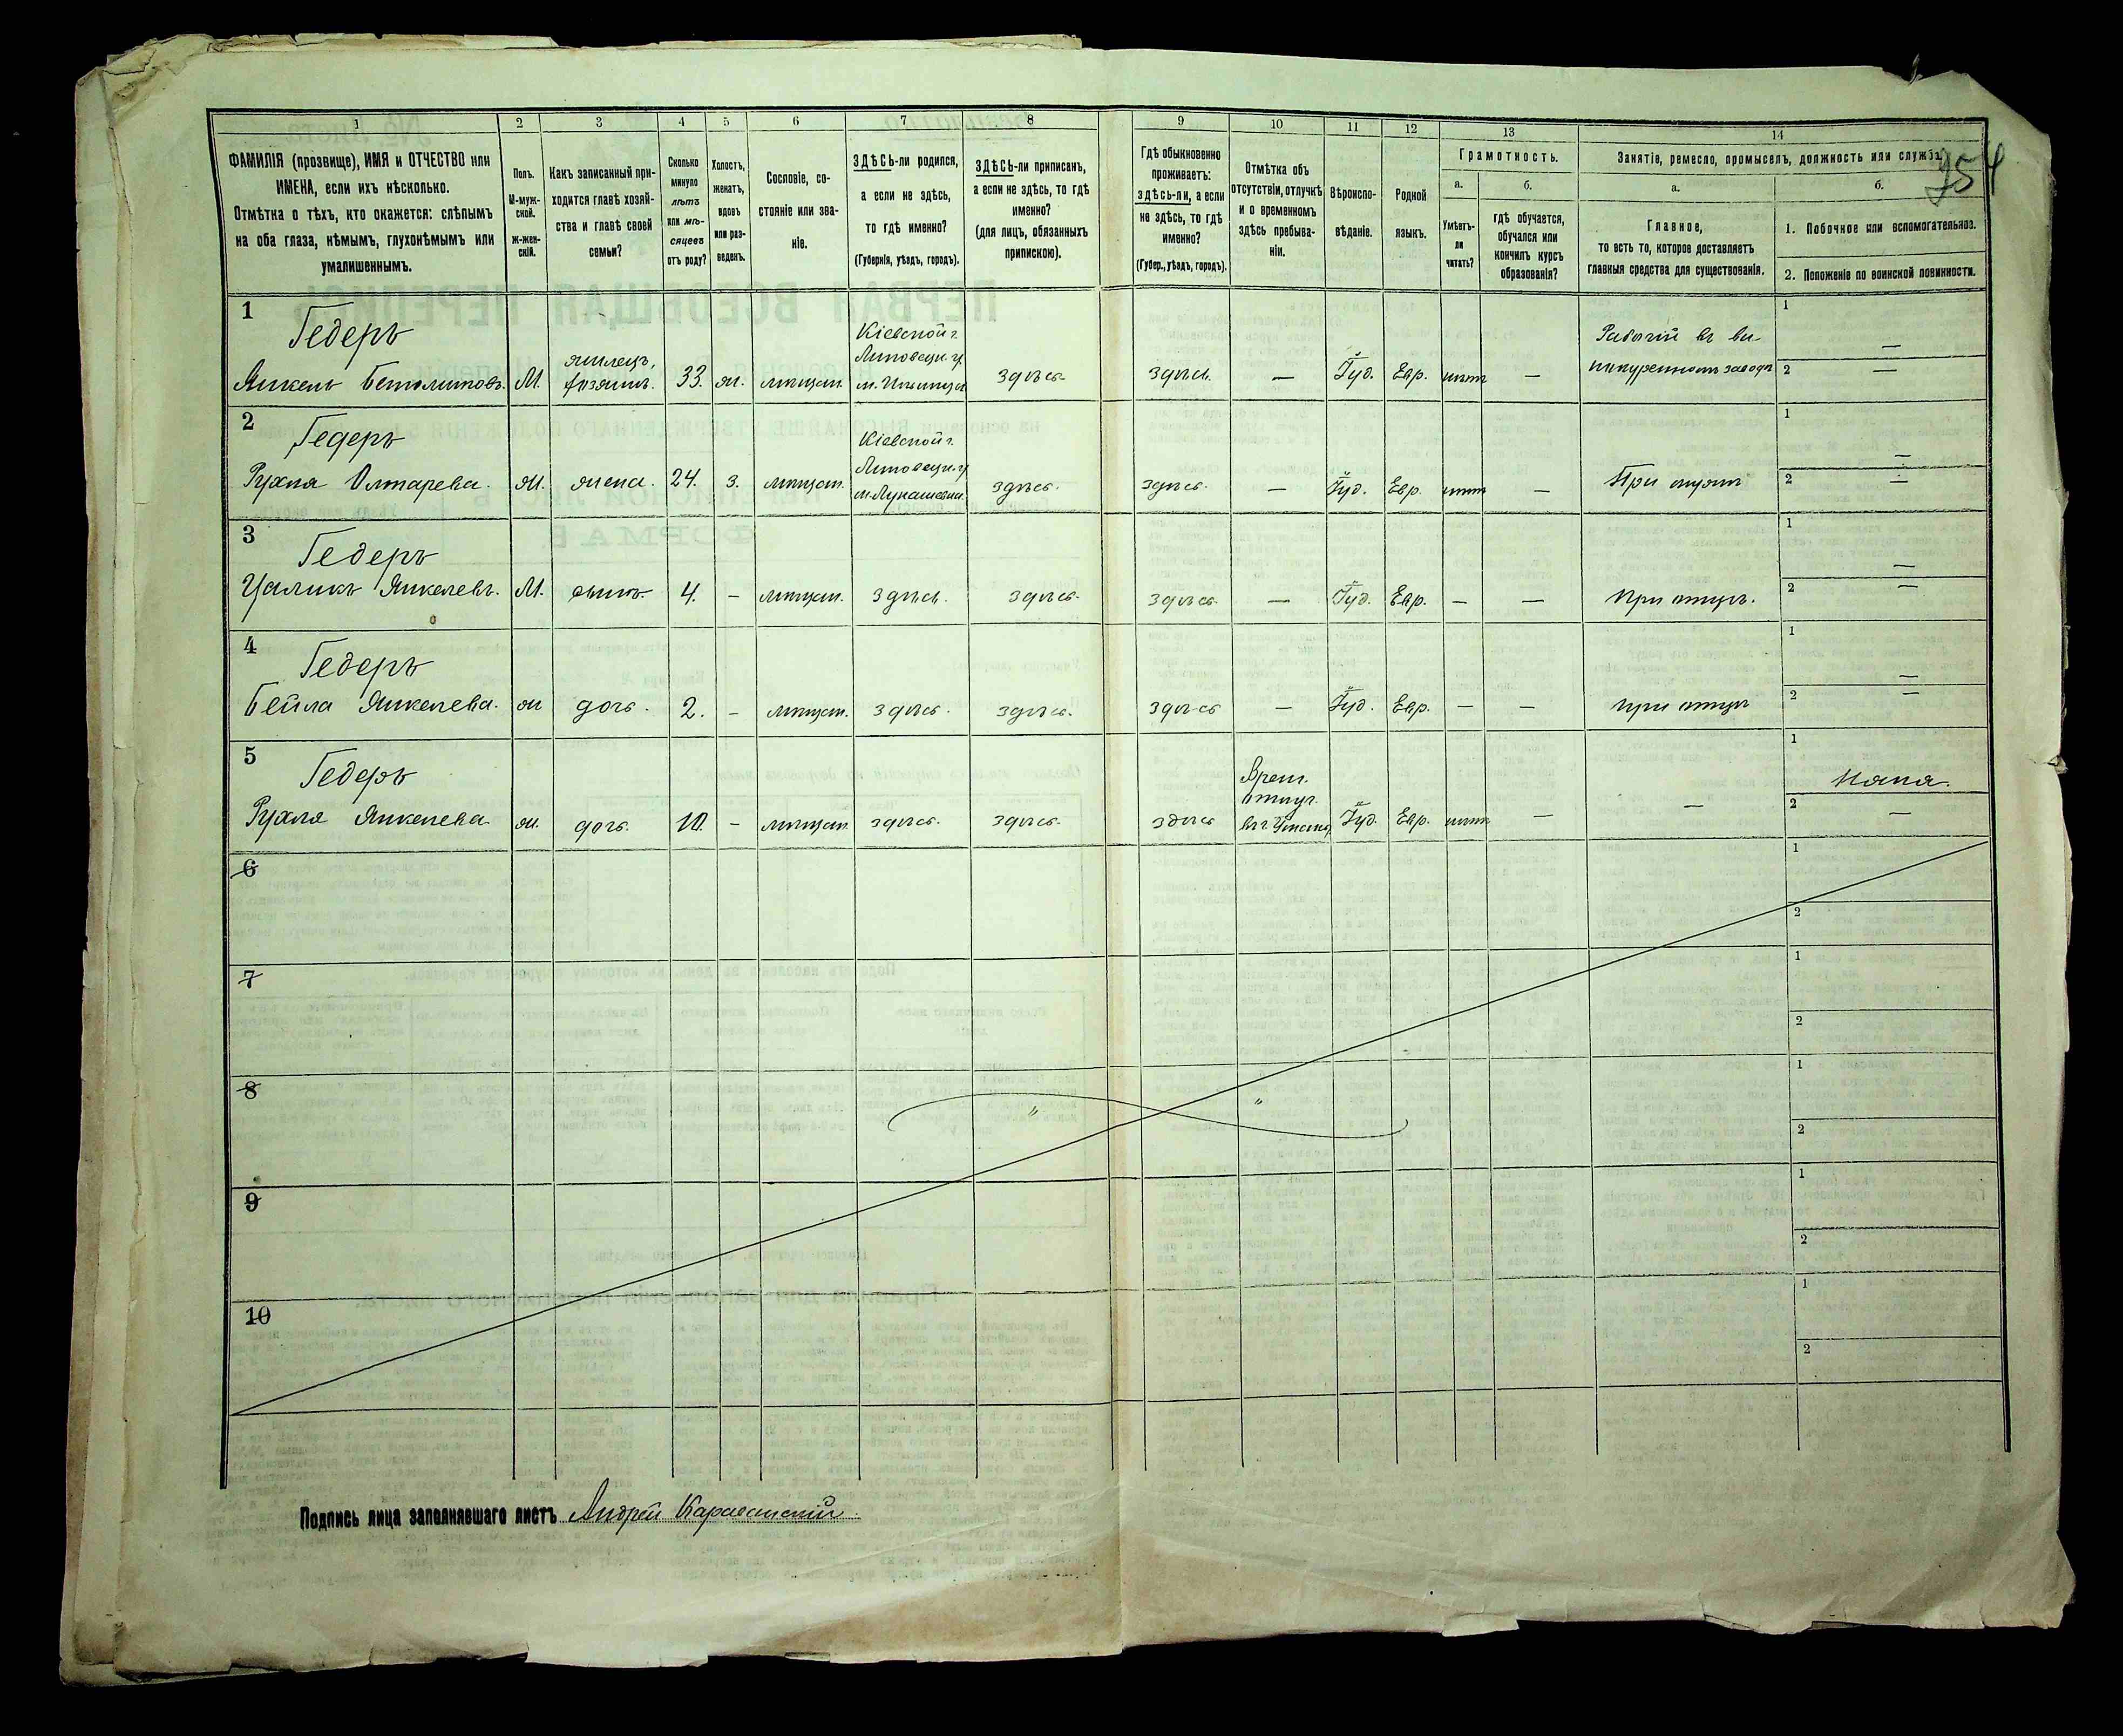 254
1
ФАМИЛІЯ (прозвище), ИМЯ и ОТЧЕСТВО или
ИМЕНА, если ихъ нѣсколько.
Отмѣтка о тѣхъ, кто окажется: слѣпымъ
на оба глаза, нѣмымъ, глухонѣмымъ или
умалишеннымъ.
2
Полъ.
М-муж-
ской.
Ж-жен-
скій.
3
Какъ записанный при-
ходится главѣ хозяй-
ства и главѣ своей
семьи?
4
Сколько
минуло
лѣтъ
или мѣ-
сяцевъ
отъ роду?
5
Холостъ,
женатъ,
вдовъ
или раз-
веденъ.
6
Сословіе, со-
стояніе или зва-
ніе.
7
ЗДѢСЬ-ли родился,
а если не здѣсь,
то гдѣ именно?
(Губернія, уѣздъ, городъ).
8
ЗДѢСЬ-ли приписанъ,
а если не здѣсь, то гдѣ
именно?
(для лицъ, обязанныхъ
припискою).
9
Гдѣ обыкновенно
проживаетъ:
здѣсь-ли, а если
не здѣсь, то гдѣ
именно?
(Губер., уѣздъ, городъ).
10
Отмѣтка объ
отсутствіи, отлучкѣ
и о временномъ
здѣсь пребыва-
ніи.
11
Вѣроиспо-
вѣданіе.
12
Родной
языкъ.
13
Грамотность.
а.
Умѣетъ-
ли
читать?
б.
гдѣ обучается,
обучался или
кончилъ курсъ
образованія?
14
Занятіе, ремесло, промыселъ, должность или служба.
а.
Главное,
то есть то, которое доставляетъ
главныя средства для существованія.
б.
1. Побочное или вспомогательное.
2. Положеніе по воинской повинности.
1
Гедеръ
Янкель
М.
жилецъ,
хозяинъ.
33.
ж.
мѣщан.
Кіевской г.
Липовецк. у.
здѣсь
здѣсь.
—
Іуд.
Евр.
нѣтъ
—
Рабочій въ ви-
нокуренномъ заводѣ
1 —
2 —
2
Гедеръ
Рухля
ж.
жена.
24.
з.
мѣщан.
Кіевской г.
Липовецк. у.
м. Лукашевка
здѣсь.
здѣсь.
—
Іуд.
Евр.
нѣтъ
—
При мужѣ
1 —
2 —
3
Гедеръ
Цаликъ Янкелевъ.
М.
сынъ.
4.
—
мѣщан.
здѣсь.
здѣсь.
здѣсь.
—
Іуд.
Евр.
—
—
При отцѣ.
1 —
2 —
4
Гедеръ
Бейла Янкелева.
ж
дочь.
2.
—
мѣщан.
здѣсь.
здѣсь.
здѣсь
—
Іуд.
Евр.
—
—
при отцѣ
1 —
2 —
5
Гедеръ
Рухля Янкелева
ж.
дочь.
10.
—
мѣщан.
здѣсь.
здѣсь.
здѣсь
Врем.
отлуч.
въ г. Умань
Іуд.
Евр.
нѣтъ
—
—
1 Няня.
2 —
6
1
2
7
1
2
8
"
"
1
2
9
1
2
10
1
2
Подпись лица заполнявшаго листъ Андрей Караванскій